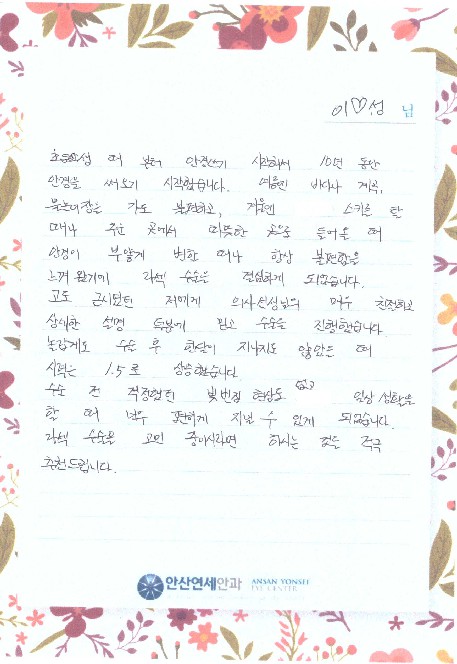 이♡성 님
초등학생 때 부터 안경쓰기 시작해서 10년 동안
안경을 써오기 시작했습니다. 여름엔 바다나 계곡,
물놀이장을 가도 불편하고, 겨울엔 스키를 탈
때나 추운 곳에서 따뜻한 곳으로 들어올 때
안경이 뿌옇게 변할 때나 항상 불편함을
느껴 왔기에 라섹 수술을 결심하게 되었습니다.
고도 근시였던 저에게 의사선생님의 매우 친절하고
상세한 설명 덕분에 믿고 수술을 진행했습니다.
놀랍게도 수술 후 한달이 지나지도 않았을 때
시력은 1.5로 상승했습니다.
수술 전 걱정했던 빛번짐 현상도 없고 일상 생활을
할 때 너무 편하게 지낼 수 있게 되었습니다.
라섹 수술을 고민 중이시라면 하시는 것을 적극
추천드립니다.
안산연세안과 ANSAN YONSEI
EYE CENTER